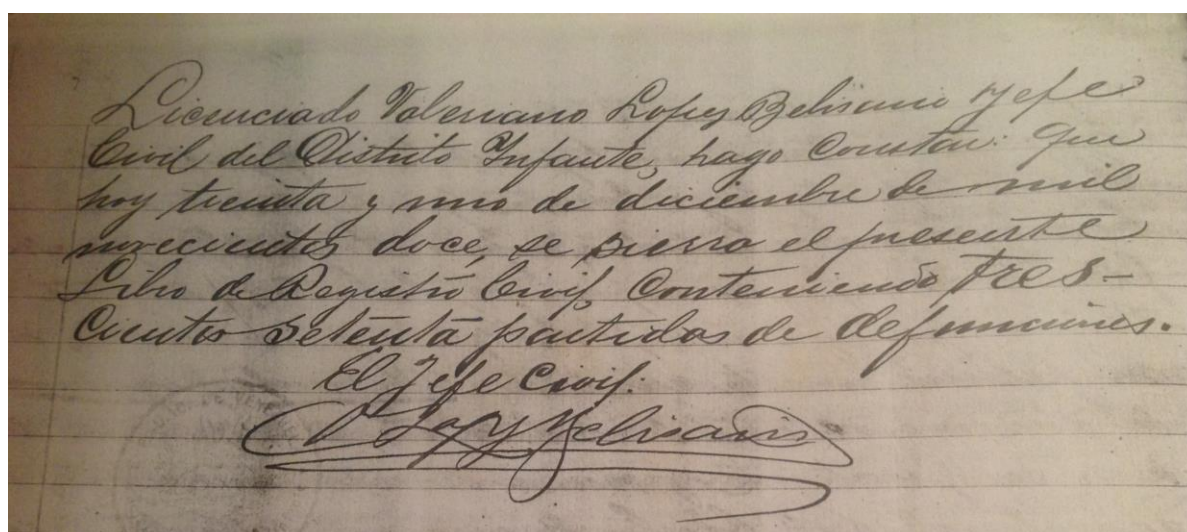 Licenciado Valeriano Lopez Belisario Jefe
Civil del Distrito Infante, hago constar: Que
hoy treinta y uno de diciembre de mil
novecientos doce, se sierra el presente
Libro de Registro Civil, Conteniendo tres-
cientos setenta partidas de defunciones.
El Jefe Civil.
V Lopez Belisario